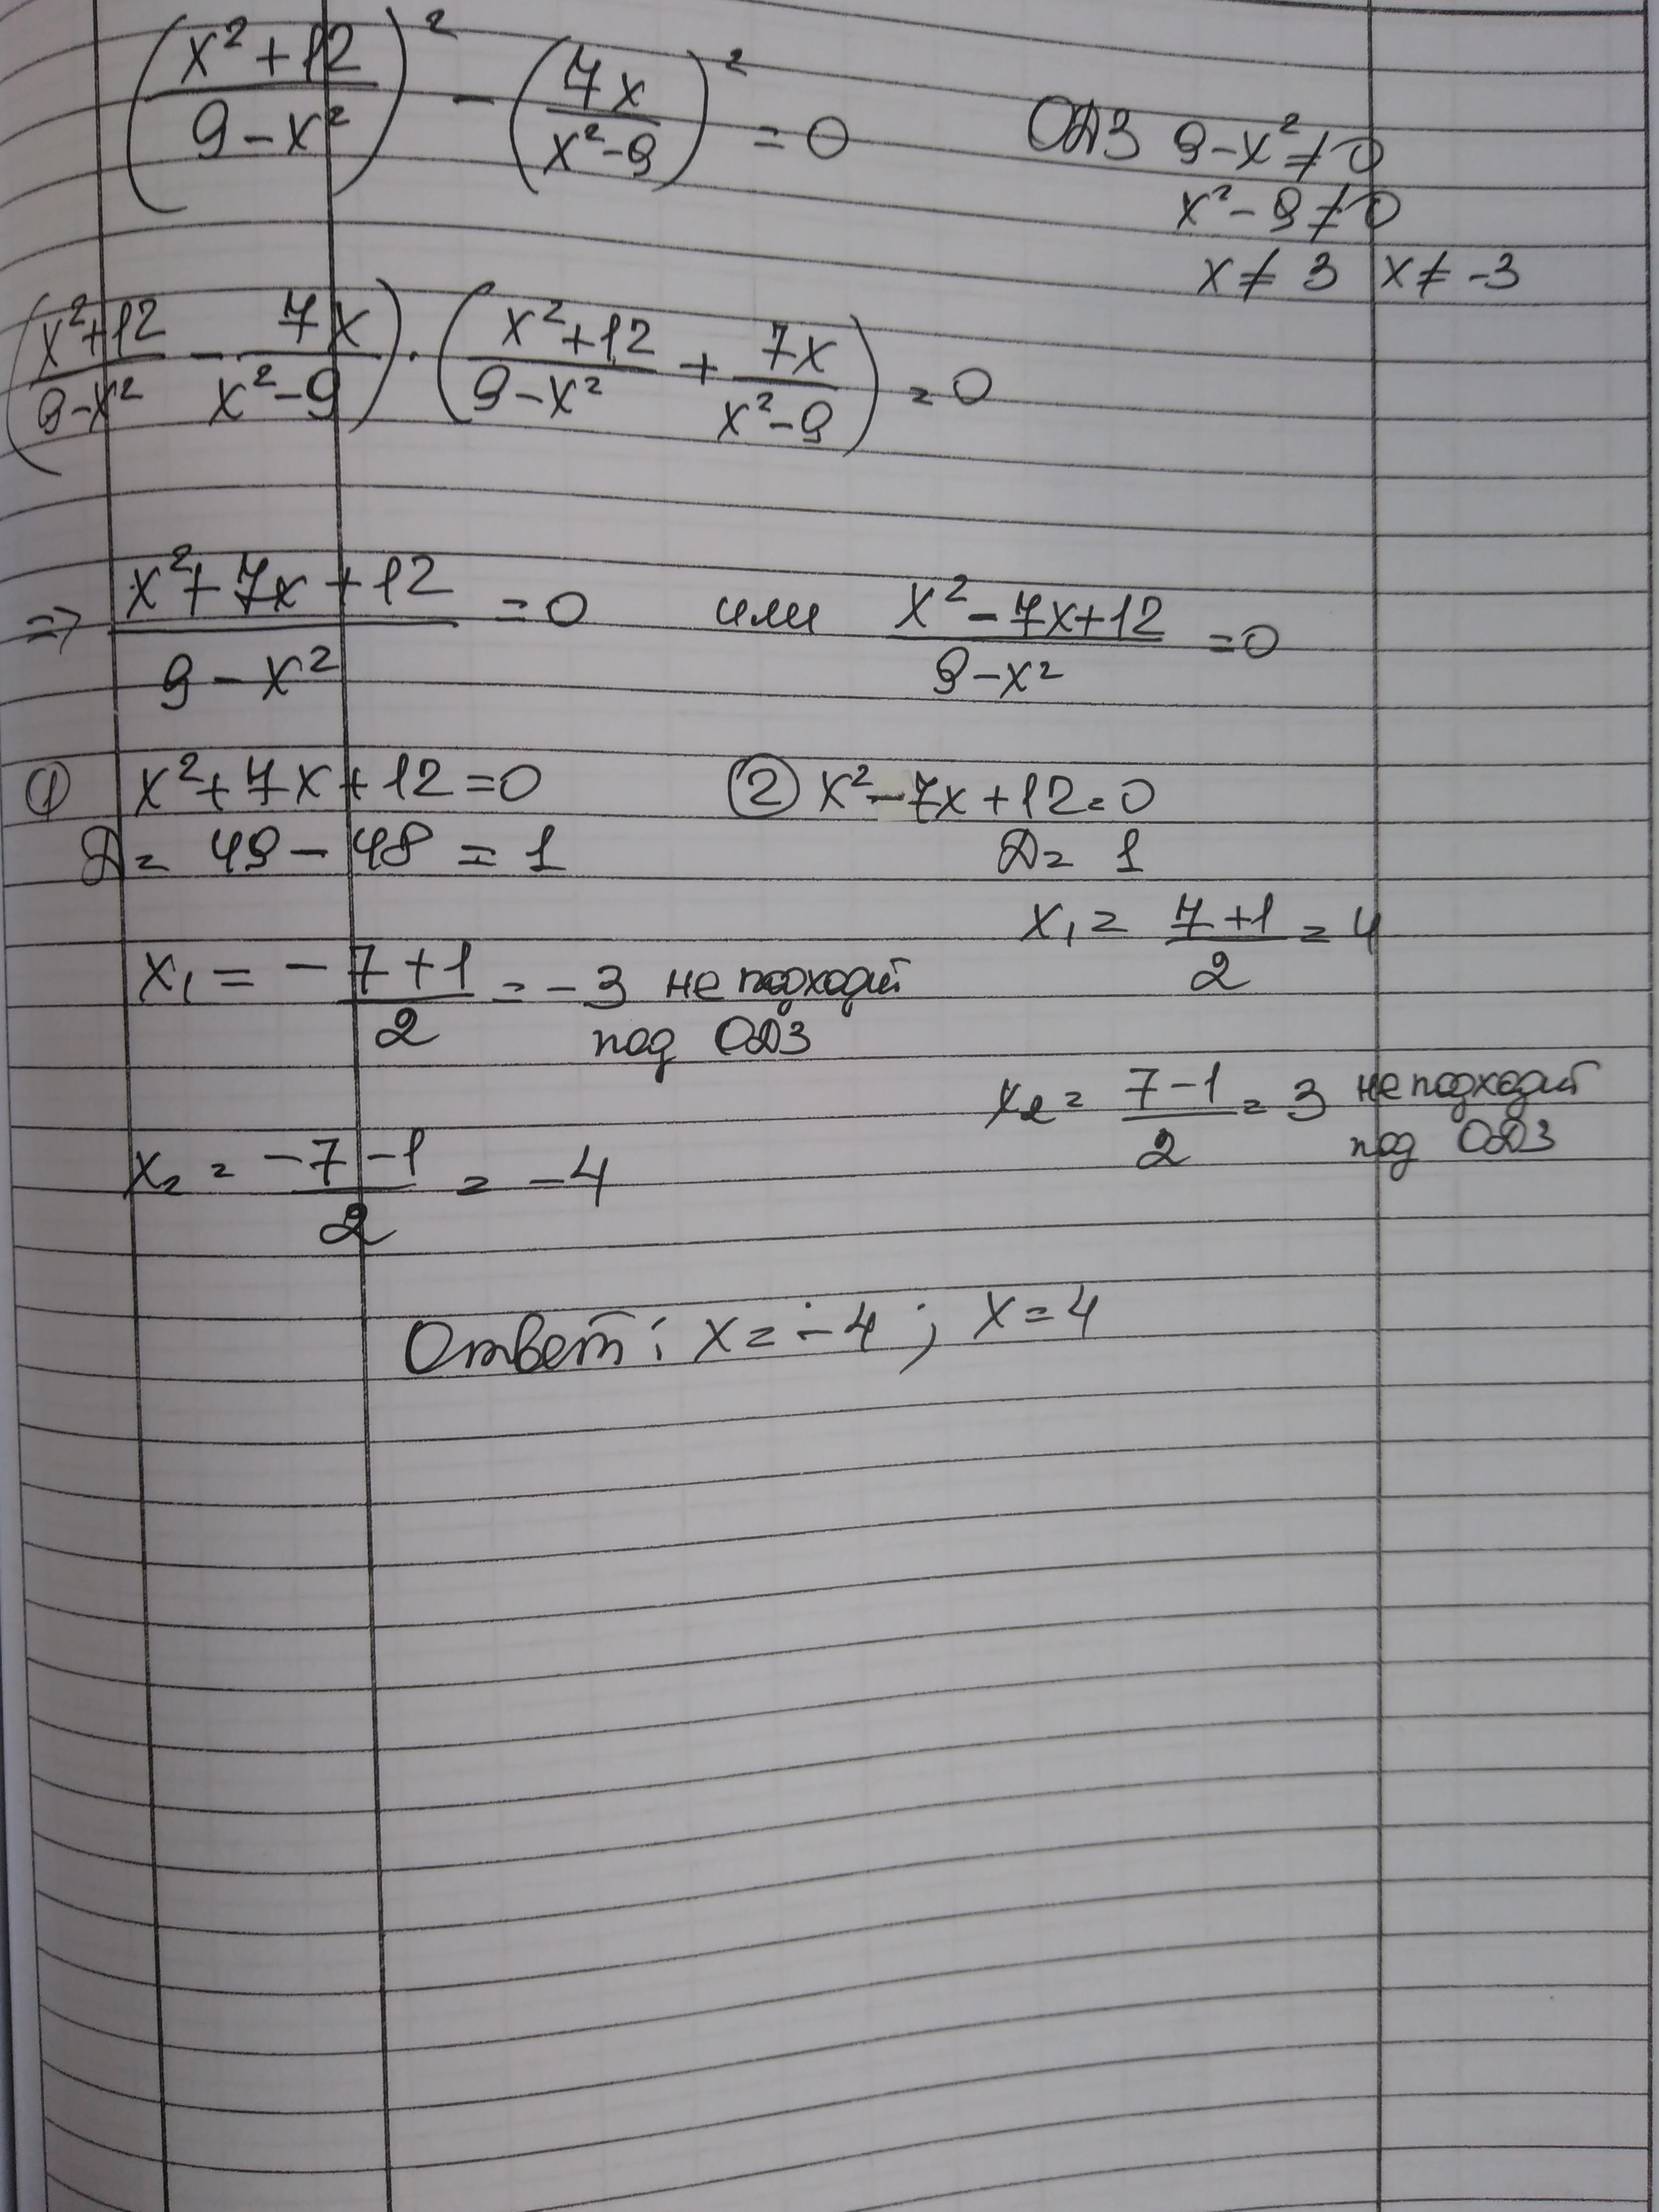 (x²+12 / 9-x²)² - (7x / x²-9)² = 0
ОДЗ 9-x² ≠ 0
x²-9 ≠ 0
x ≠ 3 x ≠ -3
(x²+12 / 9-x² - 7x / x²-9) · (x²+12 / 9-x² + 7x / x²-9) = 0
=> x²+7x+12 / 9-x² = 0 или x²-7x+12 / 9-x² = 0
① x²+7x+12=0
Д= 49-48 = 1
x₁ = -7+1 / 2 = -3 не подходит
под ОДЗ
x₂ = -7-1 / 2 = -4
② x²-7x+12=0
Д= 1
x₁ = 7+1 / 2 = 4
x₂ = 7-1 / 2 = 3 не подходит
под ОДЗ
Ответ: x=-4; x=4